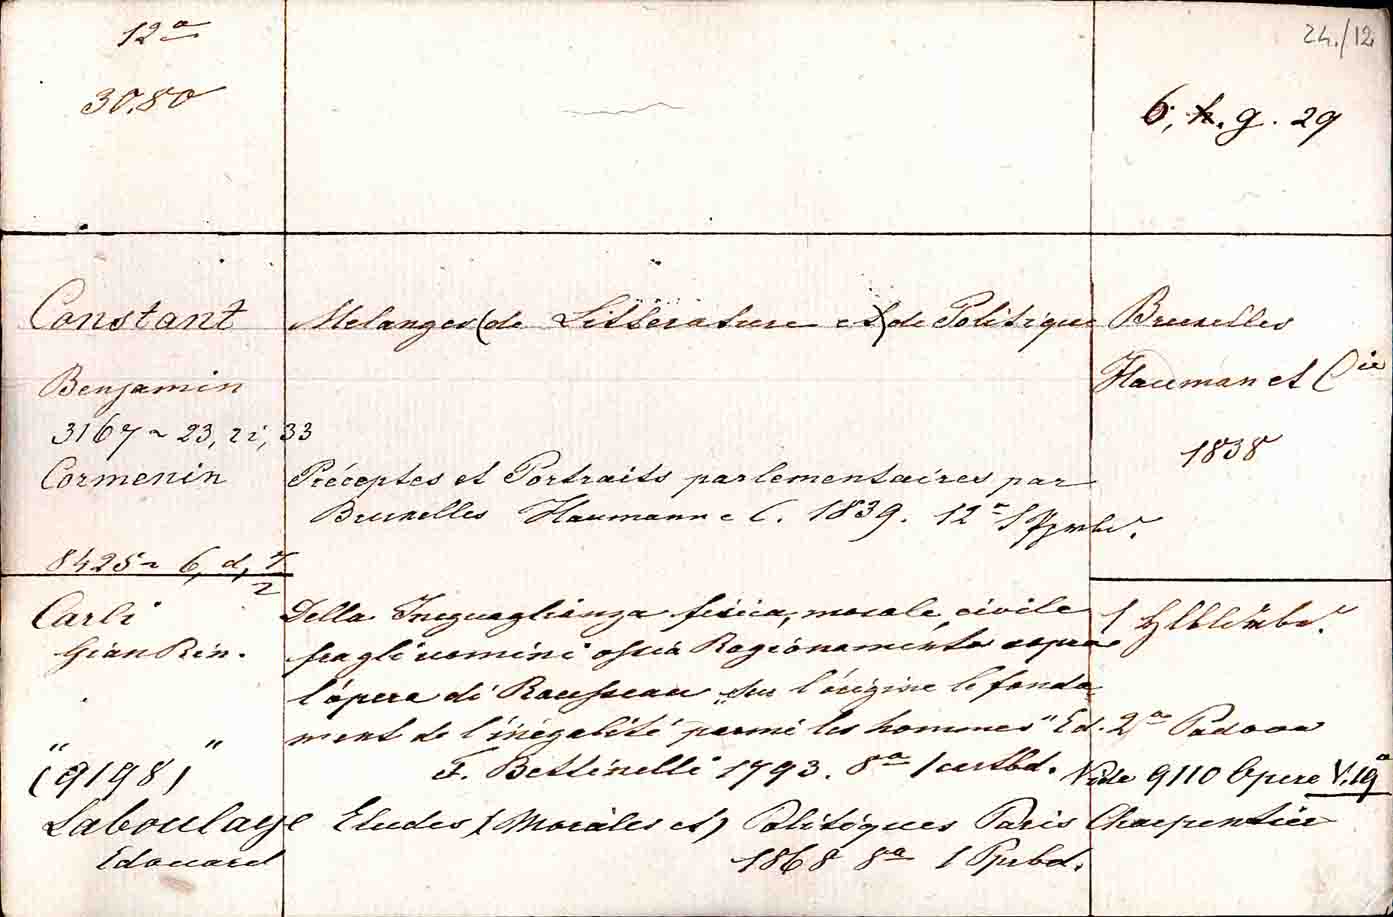 12a
24./12
30.80
6, h. g. 29
Constant Melanges (de Litterature et) de Politique Bruxelles
Benjamin Hauman et Cie
3167 ~ 23, 33
1838
Cormenin Préceptes et Portraits parlementaires par
Bruxelles Haumann e C. 1839. 12a 1
8425 ~ 6, d, 7
2
Carli Della Ineguaglianza fisica, morale, civile 1
Gian Rin. fra gli uomini ossia Ragionamento sopra
l'opera di Rousseau „Sur l'origine le fonda
ment de l'inégalité parmi les hommes" Ed. 2da Padova
" "
T. Bettinelli 1793. 8a 1 cartbd. Vide 9110 Opere V. 19a
(9198)
Laboulaye Etudes (Morales et) Politiques Paris Charpentier
Edouard 1868 8a 1 Pprbd.